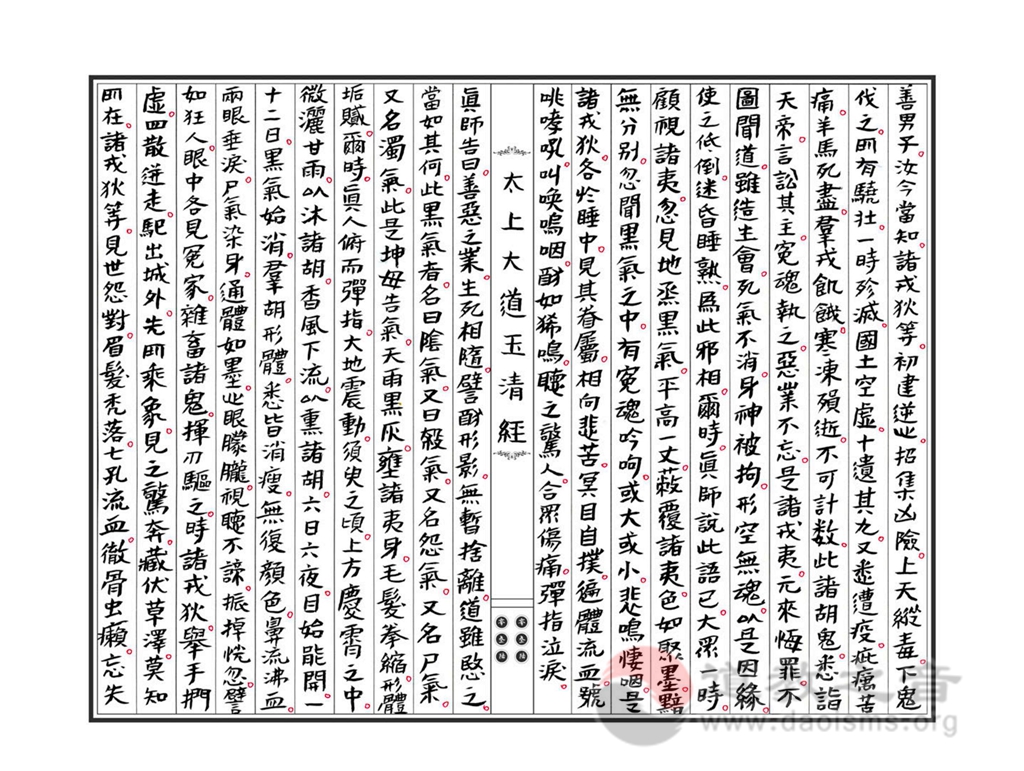 善男子汝今當知諸戎狄等初建逆心招集凶險上天縱毒下鬼
伐之所有驍壯一時殄滅國土空虛十遺其九又悉遭疫疵癘苦
痛羊馬死盡羣戎飢餓寒凍殞逝不可計數此諸胡鬼悉詣
天帝言訟其主冤魂執之惡業不忘是諸戎夷元來悔罪不
圖聞道雖造生會死氣不消身神被拘形空無魂以是因緣
使之低倒迷昏睡熟爲此邪相爾時眞師說此語已大眾一時
顧視諸夷忽見地烝黑氣平高一丈蔽覆諸夷色如聚墨黯
無分别忽聞黑氣之中有冤魂吟呴或大或小悲鳴悽咽是
諸戎狄各於睡中見其眷屬相向悲苦冥目自撲遍體流血號
咷哮吼叫喚嗚咽酹如狶鳴聽之驚人合眾傷痛彈指泣淚
太上大道玉清經
眞師告曰善惡之業生死相隨譬酹形影無暫捨離道雖愍之
當如其何此黑氣者名曰陰氣又曰殺氣又名怨氣又名尸氣
又名濁氣此是坤母告氣天雨黑灰壅諸夷身毛髮拳縮形體
垢膩爾時眞人俯而彈指大地震動須臾之頃上方慶霄之中
微灑甘雨以沐諸胡香風下流以熏諸胡六日六夜目始能開一
十二日黑氣始消羣胡形體悉皆消瘦無復顏色鼻流沸血
兩眼垂淚尸氣染身通體如墨此眼朦朧視聽不諦振掉恍忽譬
如狂人眼中各見冤家雜畜諸鬼揮刃驅之時諸戎狄舉手捫
虛四散迸走馳出城外先所乘象見之驚奔藏伏草澤莫知
所在諸戎狄等見世怨對眉髮禿落七孔流血徹骨虫癩忘失
道教之音
www.daoisms.org